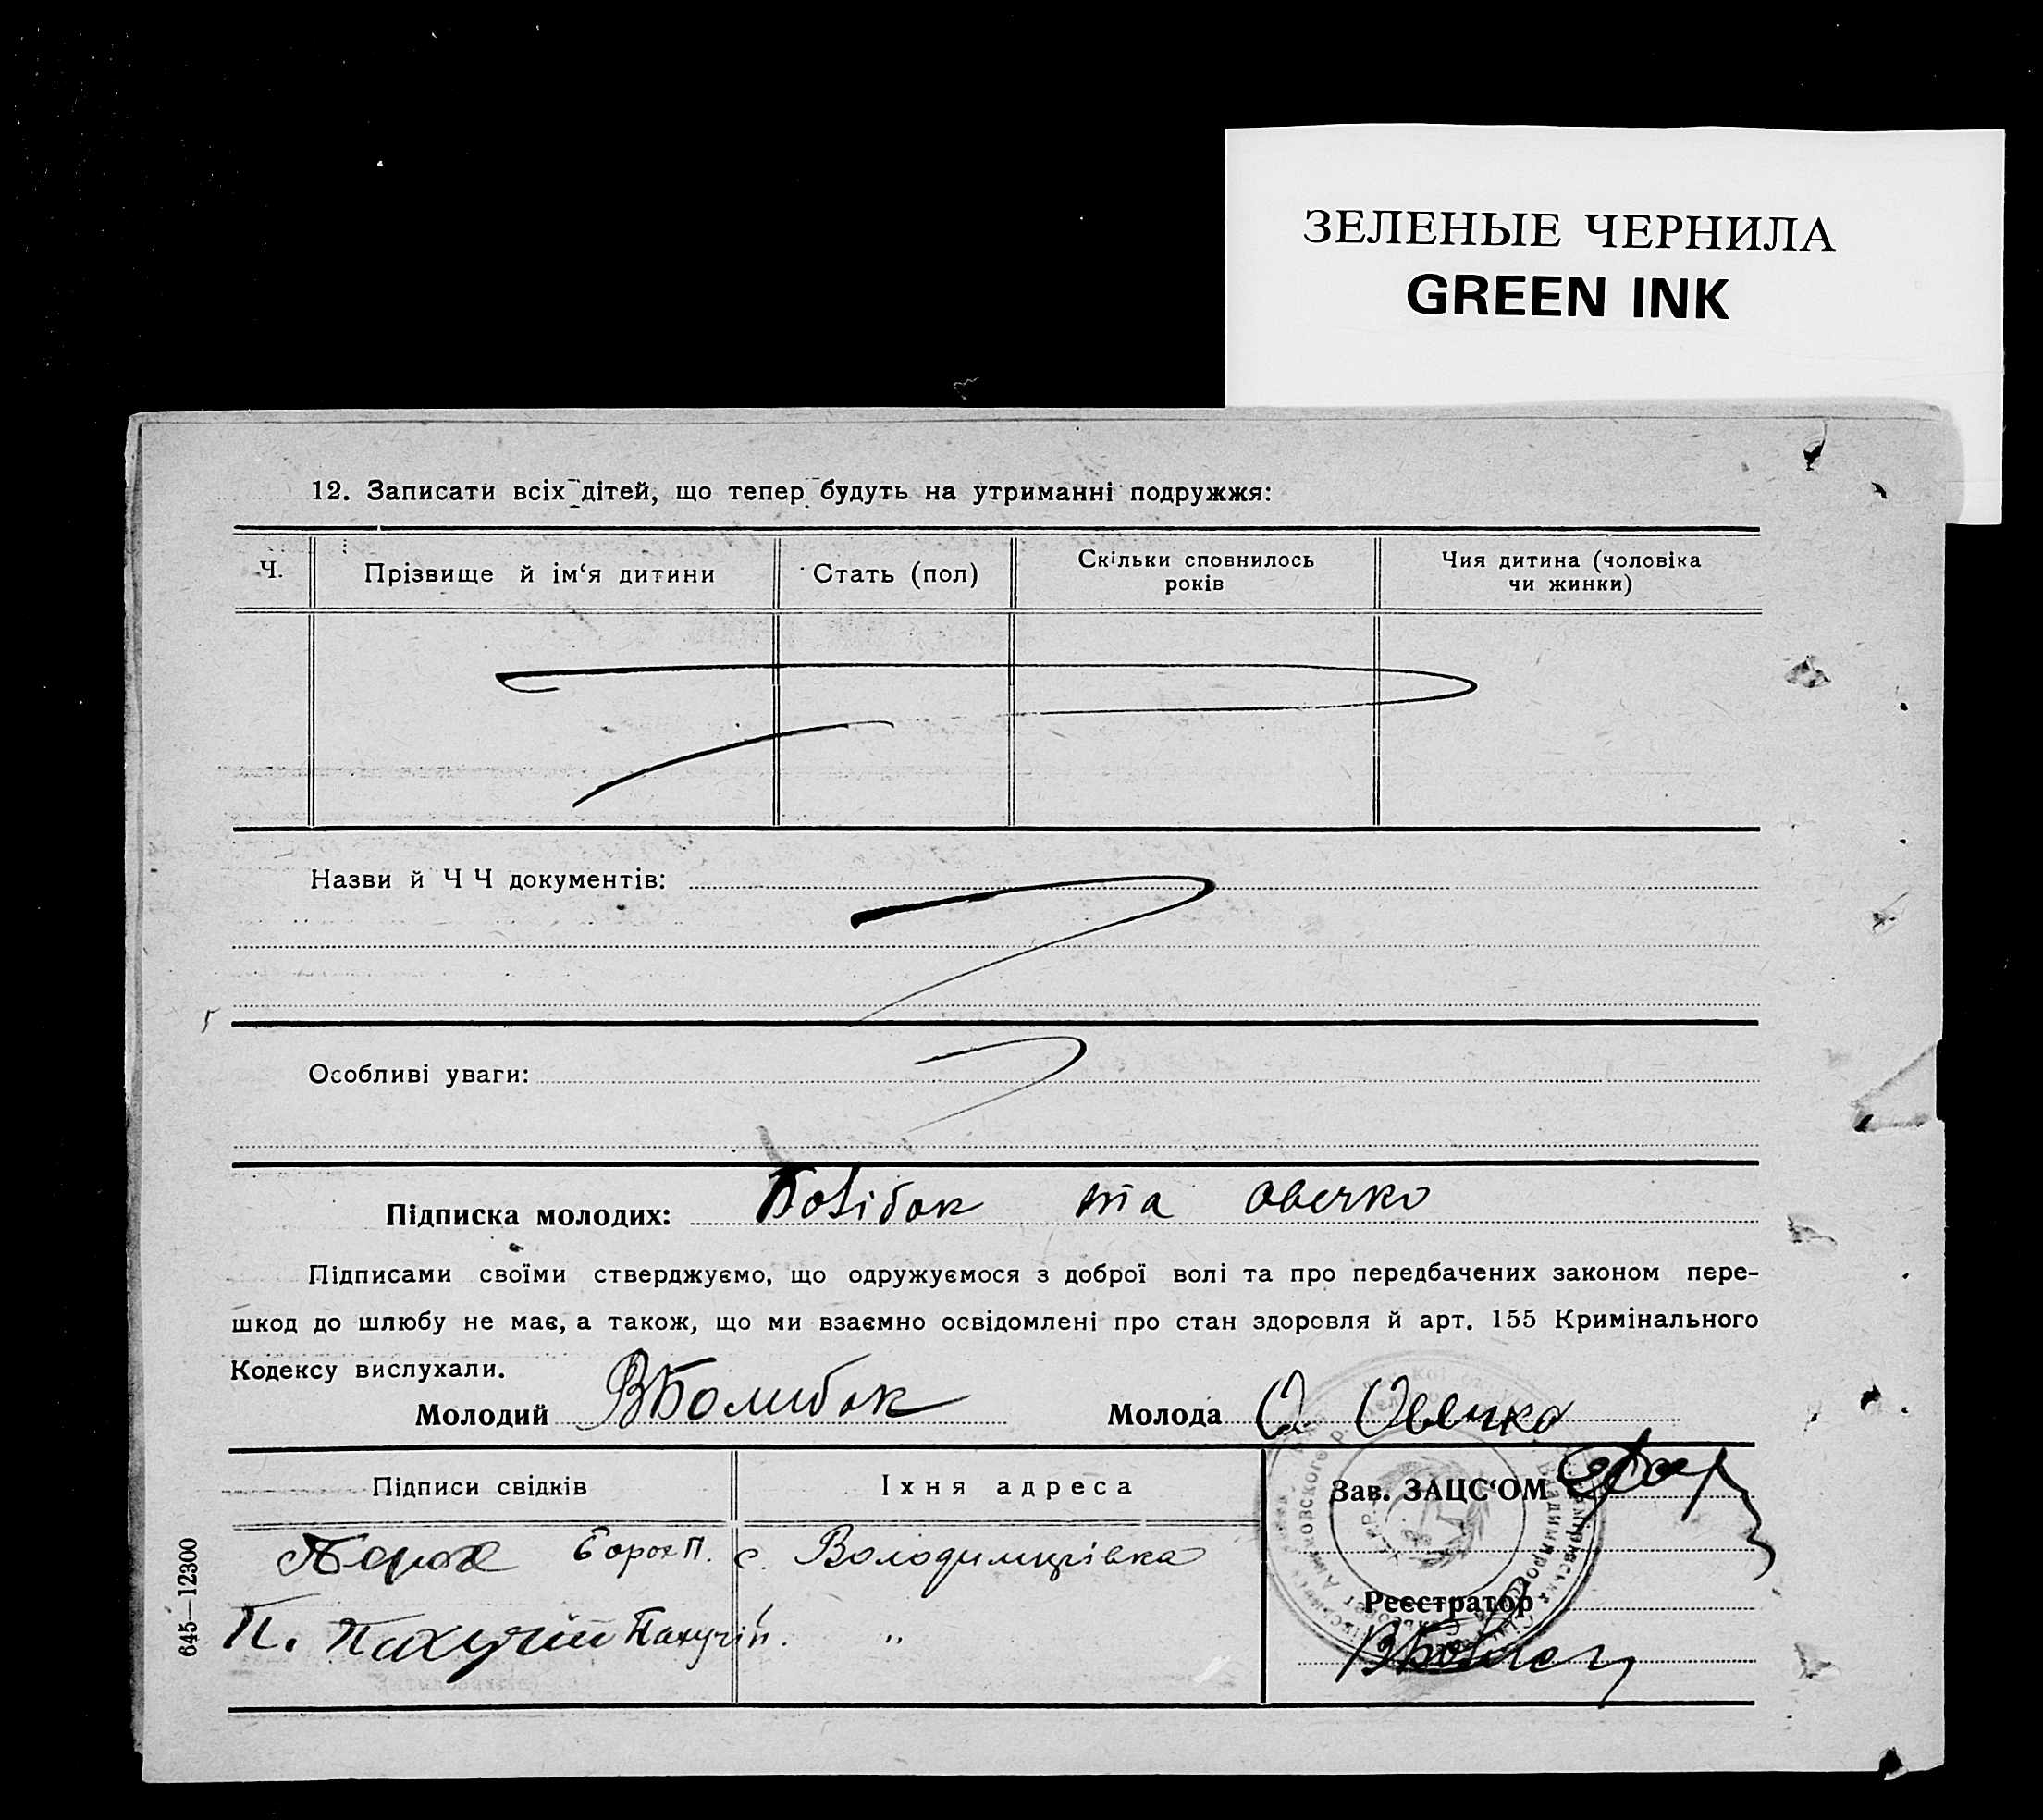 ЗЕЛЕНЫЕ ЧЕРНИЛА
GREEN INK
12. Записати всіх дітей, що тепер будуть на утриманні подружжя:
Ч.
Прізвище й ім‘я дитини
Стать (пол)
Скільки сповнилось
років
Чия дитина (чоловіка
чи жинки)
Назви й Ч Ч документів:
Особливі уваги:
Підписка молодих: та Овечко
Підписами своїми стверджуємо, що одружуємося з доброї волі та про передбачених законом пере-
шкод до шлюбу не має, а також, що ми взаємно освідомлені про стан здоровля й арт. 155 Кримінального
Кодексу вислухали.
Молодий
Молода О. Овечко
Підписи свідків
Їхня адреса
Зав. ЗАЦС‘ОМ
с. Володимирівка
Реєстратор
П. Пахучій Пахучій п. "
645—12300